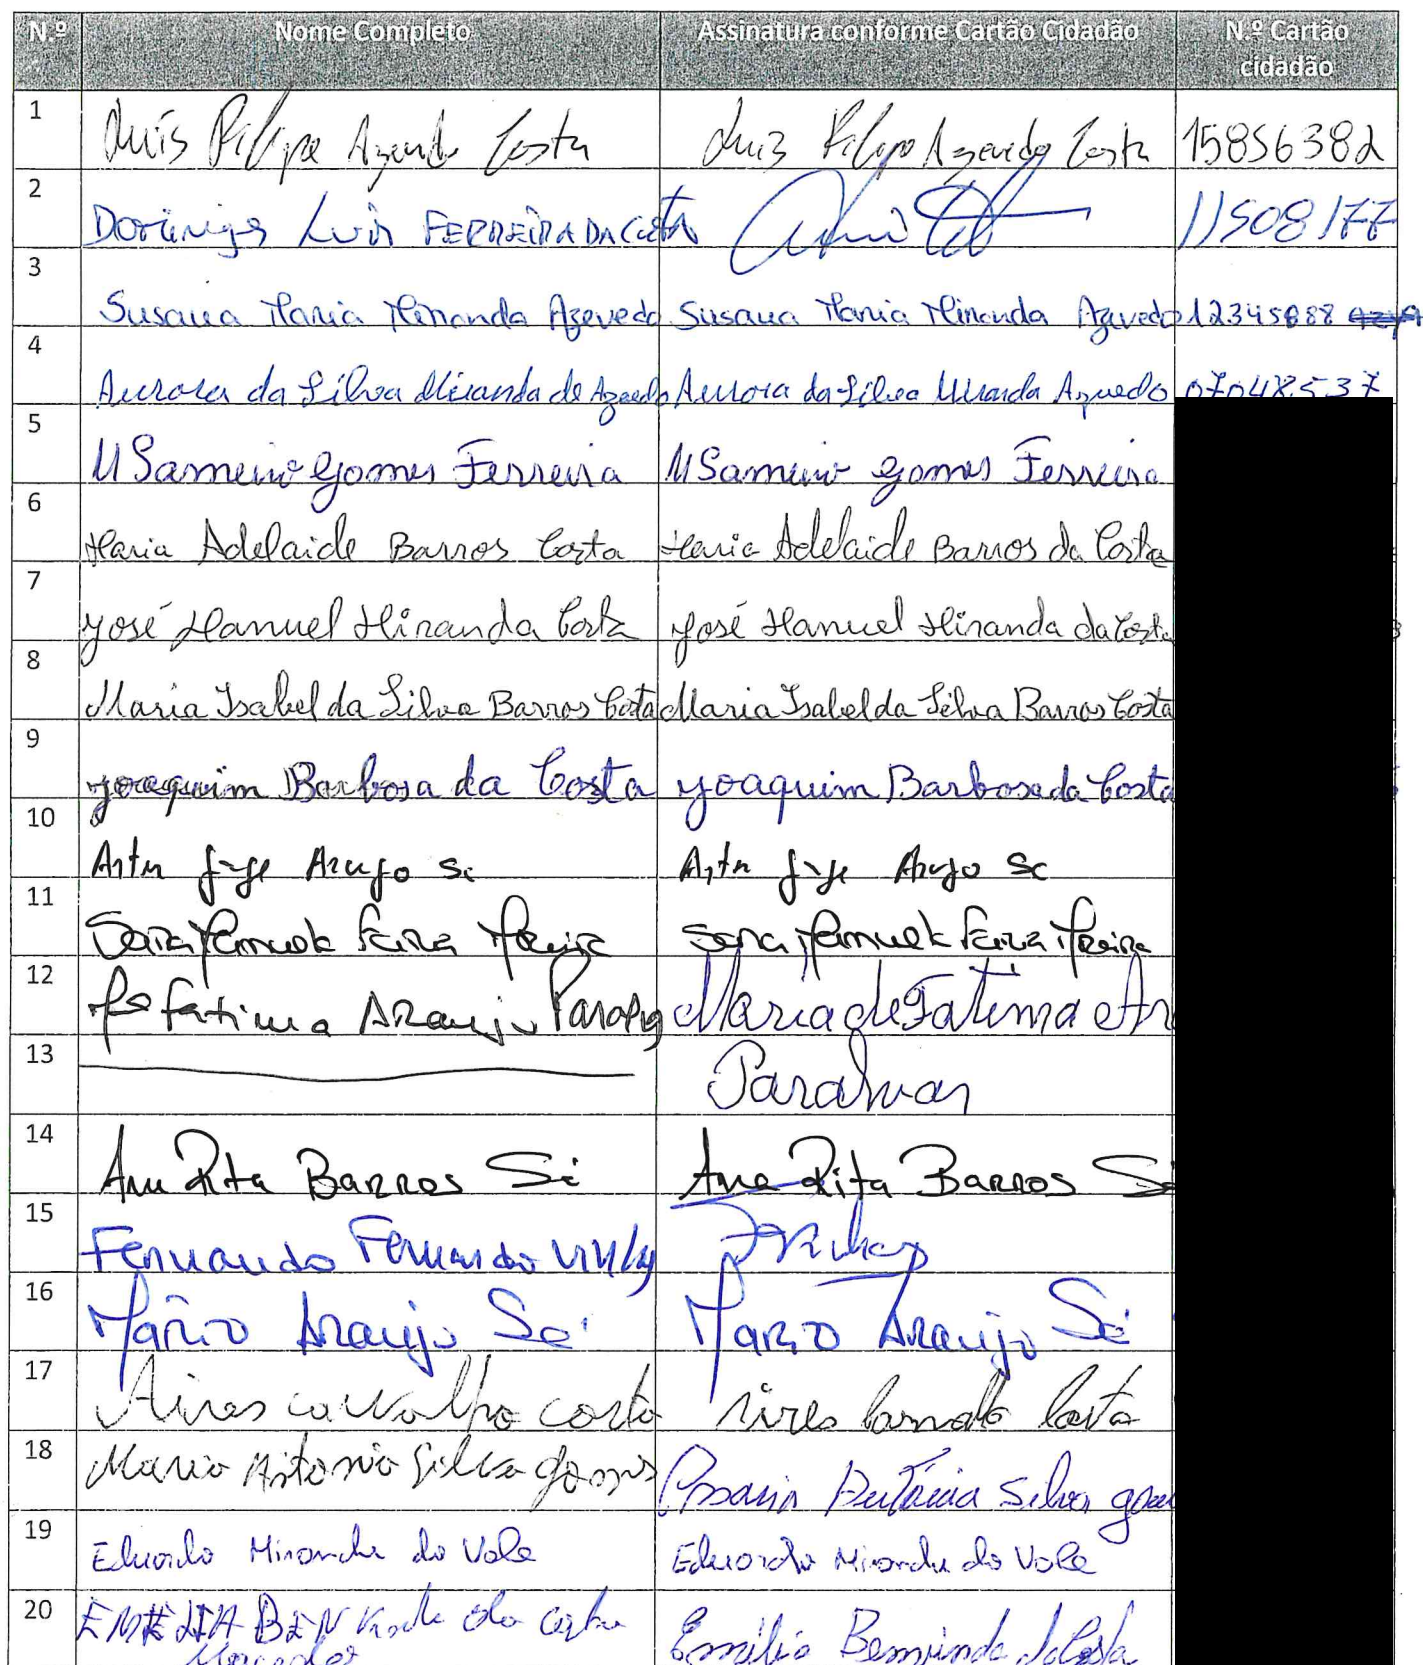 N.º Nome Completo Assinatura conforme Cartão Cidadão N.º Cartão cidadão
1 Luís Filipe Azevedo Costa Luis Filipe Azevedo Costa 15856382
2 Domingos Luis FERREIRA DA Costa 11508177
3 Susana Maria Miranda Azevedo Susana Maria Miranda Azevedo
4 Aurora da Silva Miranda de Azevedo Aurora da Silva Miranda Azevedo 07048537
5 M Sameiro Gomes Ferreira M Sameiro Gomes Ferreira
6 Maria Adelaide Barros Costa Maria Adelaide Barros da Costa
7 José Manuel Miranda Costa José Manuel Miranda da Costa
8 Maria Isabel da Silva Barros Costa Maria Isabel da Silva Barros Costa
9 Joaquim Barbosa da Costa Joaquim Barbosa da Costa
10 Artur Jorge Araujo Sá Artur Jorge Araujo Sá
11 Sara Manuela Faria Moreira Sara Manuela Faria Moreira
12 Mª Fatima Araujo Maria de Fatima Ar
13
14 Ana Rita Barros Sá Ana Rita Barros Sá
15 Fernando Fernando
16 Mário Araujo Sá Mario Araujo Sá
17 Aires Carvalho Costa Aires Carvalho Costa
18 Maria Antonia Silva Gomes Maria Antónia Silva
19 Eduardo Miranda do Vale Eduardo Miranda do Vale
20 da Costa Emília Bemvinda da Costa